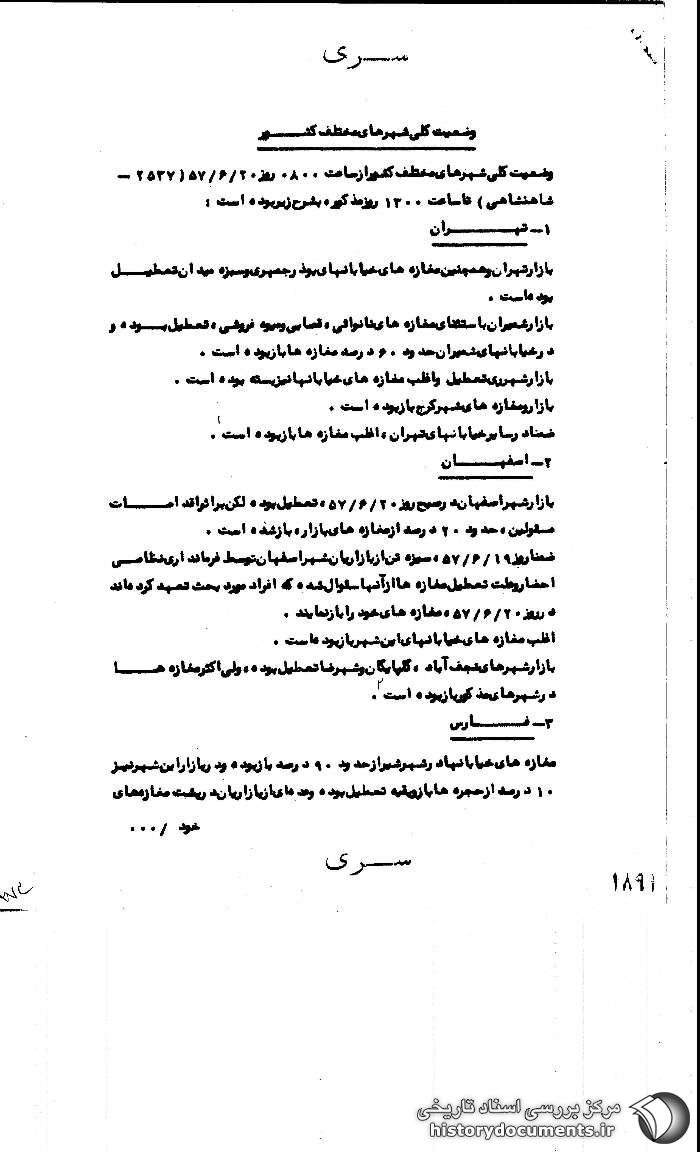 سری
وضعیت کلی شهرهای مختلف کشور
وضعیت کلی شهرهای مختلف کشور از ساعت ۰۸۰۰ روز ۵۷/۶/۲۰ (۲۵۳۷ –
شاهنشاهی) تا ساعت ۱۳۰۰ روز مذکور، بشرح زیر بوده است :
۱– تهران
بازار تهران و همچنین مغازه های خیابانهای بوذرجمهری و سبزه میدان تعطیل
بوده است .
بازار شمیران باستثنای مغازه های نانوائی ، قصابی و میوه فروشی ، تعطیل بوده و
در خیابانهای شمیران حدود ۶۰ درصد مغازه ها باز بوده است .
بازار شهرری تعطیل و اغلب مغازه های خیابانها نیز بسته بوده است .
بازار و مغازه های شهر کرج باز بوده است .
ضمنا در سایر خیابانهای تهران ، اغلب مغازه ها باز بوده است .
۲– اصفهان
بازار شهر اصفهان در صبح روز ۵۷/۶/۲۰ ، تعطیل بوده لکن بر اثر اقدامات
مسئولین ، حدود ۲۰ درصد از مغازه های بازار ، باز شده است .
ضمنا روز ۵۷/۶/۱۹ ، سیزه تن از بازاریان شهر اصفهان توسط فرمانداری نظامی
احضار و علت تعطیل مغازه ها از آنها سئوال شده که افراد مورد بحث تعهد کرده اند
در روز ۵۷/۶/۲۰ ، مغازه های خود را باز نمایند .
اغلب مغازه های خیابانهای این شهر باز بوده است .
بازار شهرهای نجف آباد ، گلپایگان و شهرضا تعطیل بوده ، ولی اکثر مغازه ها
در شهرهای مذکور باز بوده است ۲.
۳– فارس
مغازه های خیابانها در شهر شیراز حدود ۹۰ درصد باز بوده و در بازار این شهر نیز
۱۰ درصد از حجره ها باز و بقیه تعطیل بوده و عده ای از بازاریان در پشت مغازه های
خود /۰۰۰
سری
۱۸۹۱
مرکز بررسی اسناد تاریخی
historydocuments.ir